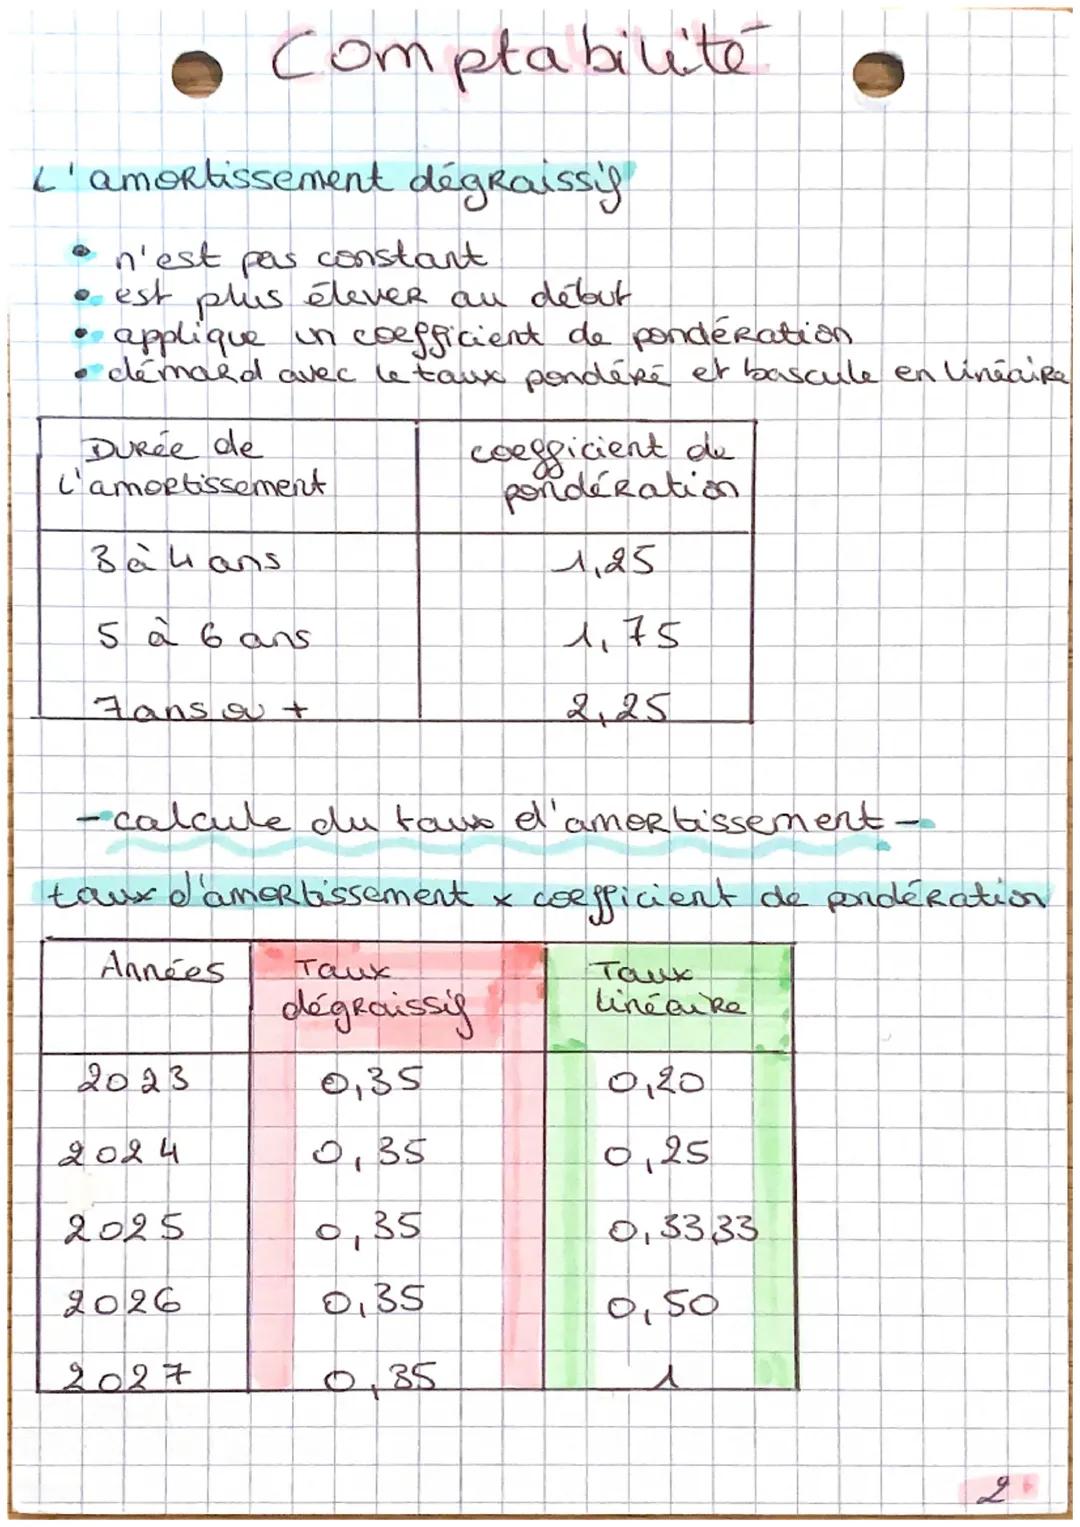 Comptabilité
L'amortissement dégraissif
• n'est pas constant
• est plus élever au début
• applique un coefficient de pondération
• démard avec le taux pondéré et bascule en linéaire
Durée de coefficient de
l'amortissement pondération
3 à 4 ans 1,25
5 à 6 ans 1,75
7 ans a + 2,25
- calcule du taux d'amortissement -
taux d'amortissement x coefficient de pondération
Années Taux Taux
dégraissif linéaire
2023 0,35 0,20
2024 0,35 0,25
2025 0,35 0,3333
2026 0,35 0,50
2027 0,35 1
2